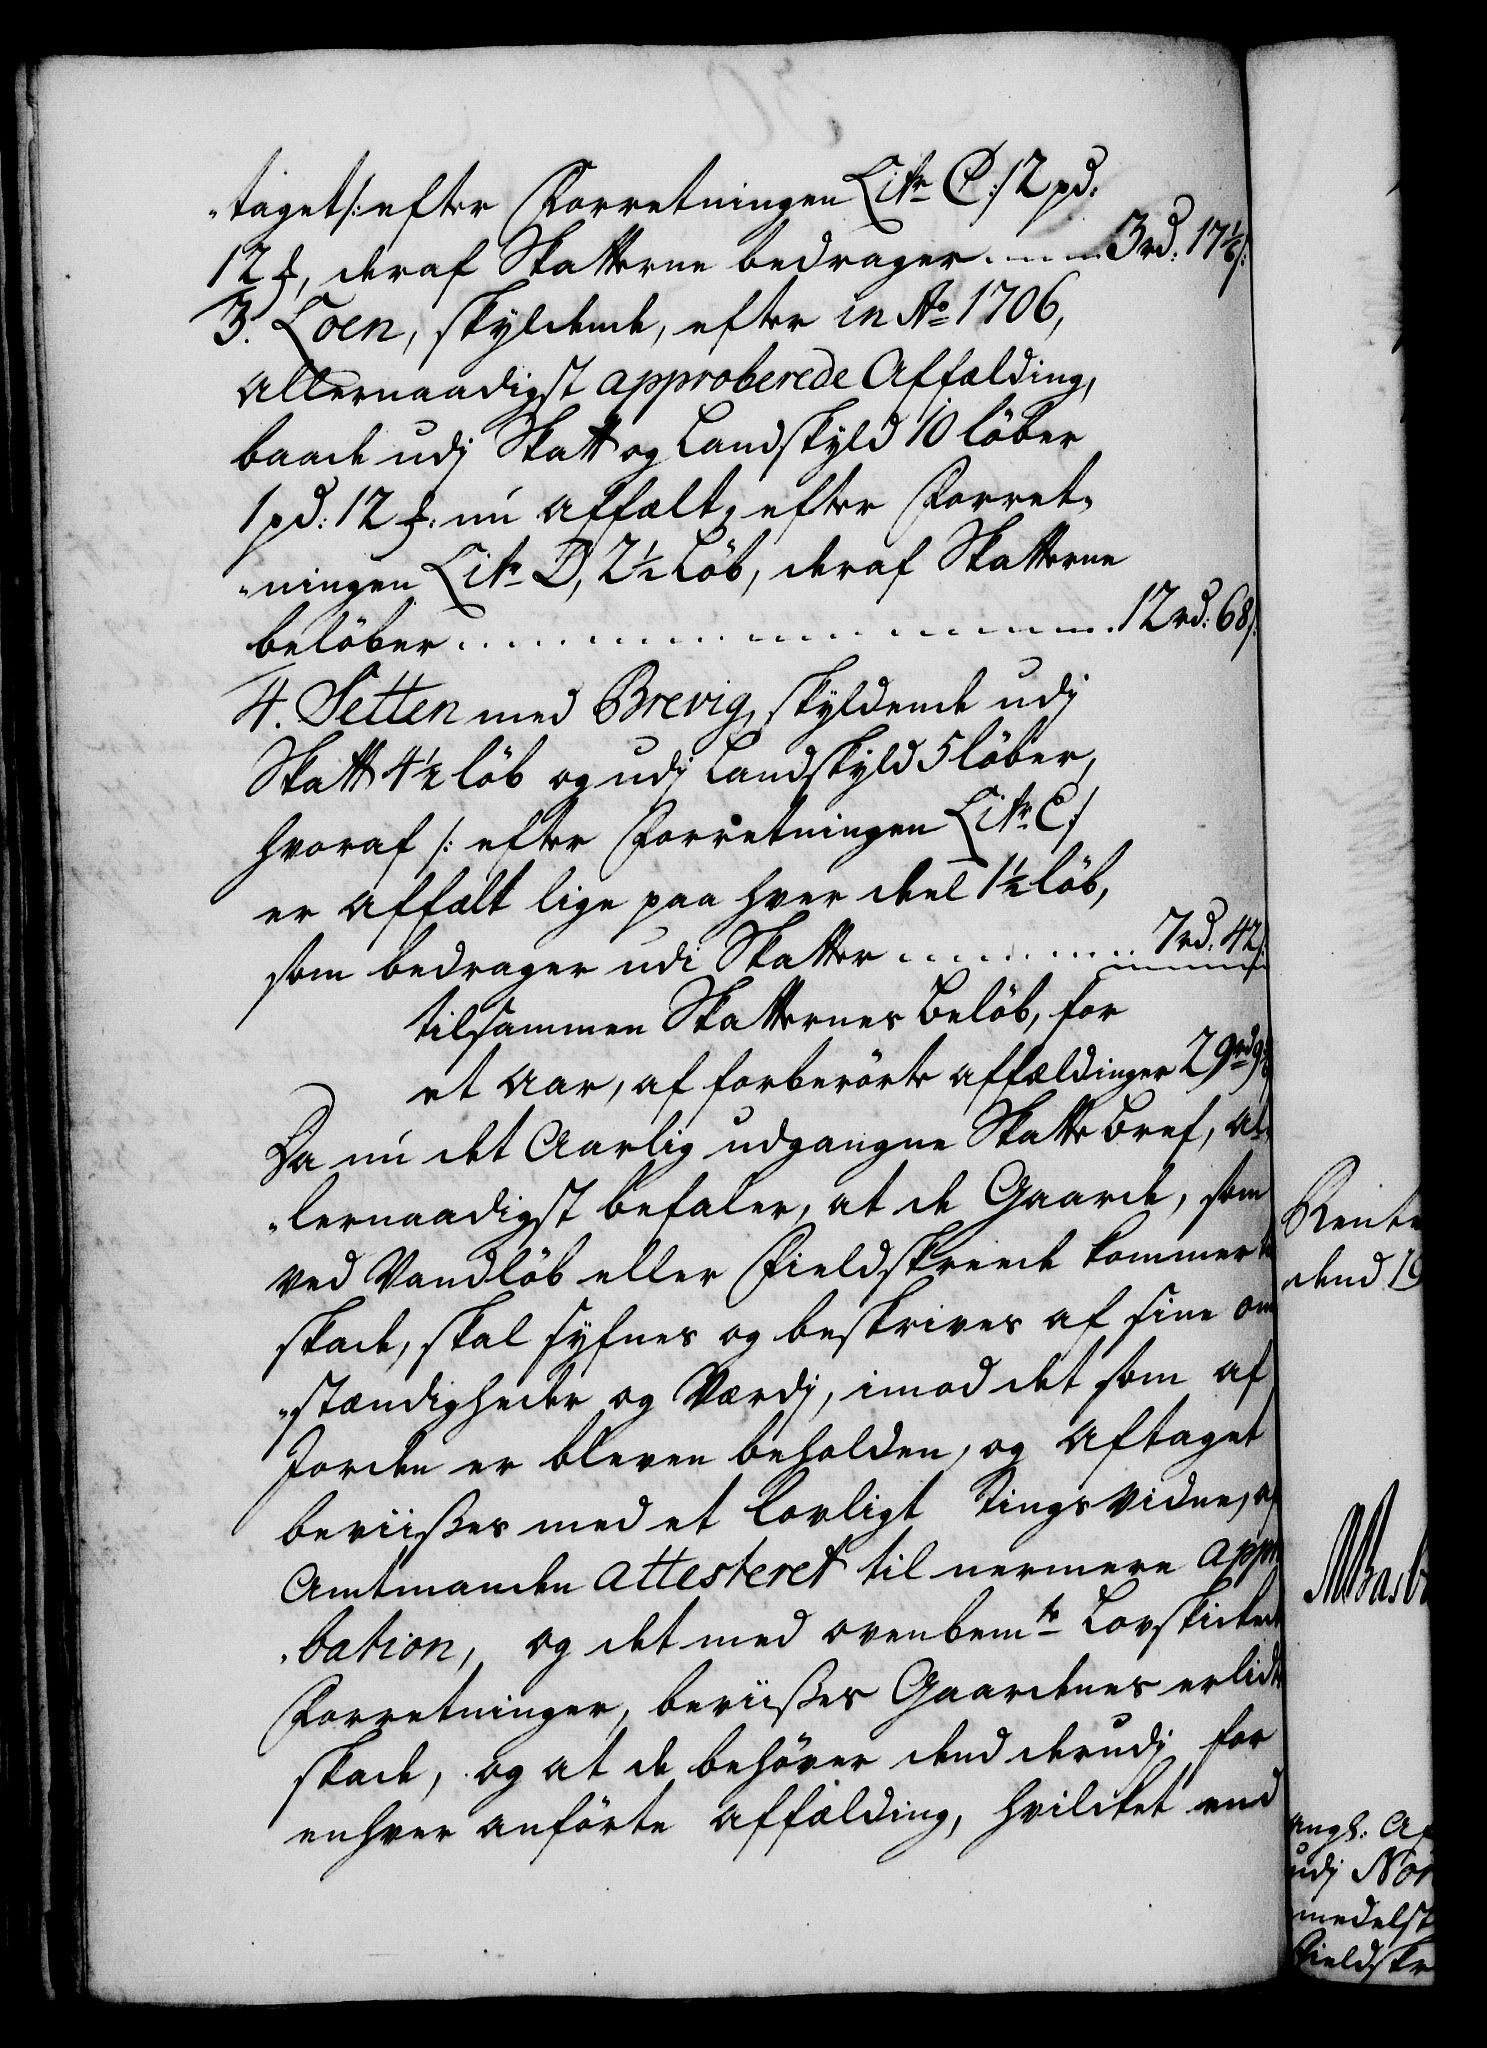 "taget /: efter Forretningen Litr C :/ 2 pd:
12 ℔, deraf Skatterne bedrager ...... 3 rd: 17½ s:
3. Loen, skyldende, efter in Ao 1706,
Allernaadigst approberede Affælding,
baade udj Skatt og Landskyld 10 löber
1 pd: 12 ℔: nu affælt, efter Forret-
"ningen Litr D, 2½ Löb, deraf Skatterne
belöber .................. 12 rd: 68 s:
4. Setten med Brevig, skyldende udj
Skatt 4½ löb og udj Landskyld 5 löber,
hvoraf /: efter Forretningen Litr C :/
er affælt lige paa hver deel 1½ löb,
som bedrager udi Skatter .......... 7 rd. 42 s:
tilsammen Skatternes Belöb, for
et Aar, af forberörte affældinger 29 rd 9
Da nu det Aarlig udgangne Skatte Bref, al-
"lernaadigst befaler, at de Gaarde, som
ved Vandlöb eller Fieldskreede kommer til
skade, skal syfnes og beskrives af sine om
"stændigheder og Værdj, imod det som af
Jorden er bleven beholden, og aftaget
beviißes med et lovligt Tingsvidne, af
Amtmanden attesteret til nermere appro
"bation, og det med ovenbemte Lovskickede
Forretninger, beviißes Gaardenes erlidte
skade, og at de behöver dend derudj for
enhver anförte affælding, hvilcket end
Rente
dend 19
angl: Af
udj Nor
medelst
Fieldskr